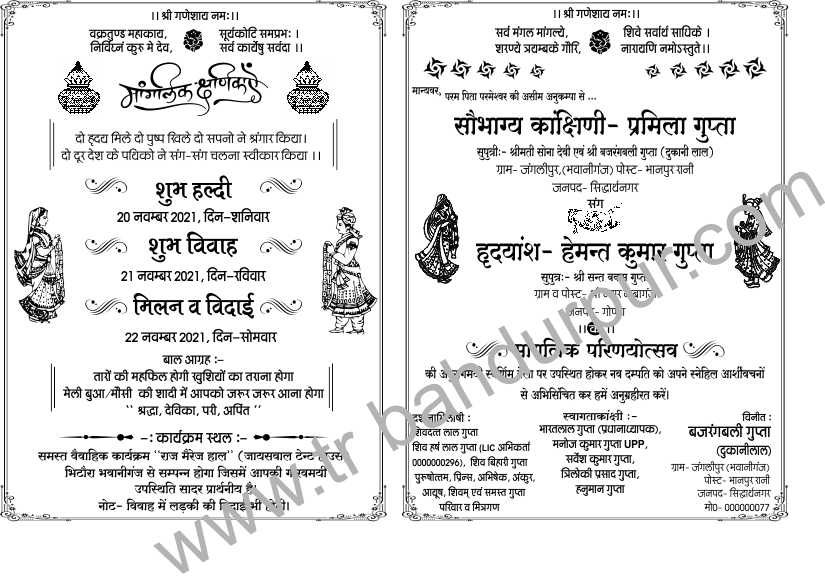 ।। श्री गणेशाय नमः।।
वक्रतुण्ड महाकाय, सूर्यकोटि समप्रभः।
निर्विघ्नं कुरु मे देव, सर्व कार्येषु सर्वदा ।।
मांगलिक क्षणिकाएँ
दो हृदय मिले दो पुष्प खिले दो सपनो ने श्रंगार किया।
दो दूर देश के पथिको ने संग-संग चलना स्वीकार किया ।।
शुभ हल्दी
20 नवम्बर 2021, दिन-शनिवार
शुभ विवाह
21 नवम्बर 2021, दिन-रविवार
मिलन व विदाई
22 नवम्बर 2021, दिन-सोमवार
बाल आग्रह :-
तारों की महफिल होगी खुशियों का तराना होगा
मेली बुआ/मौसी की शादी में आपको जरूर जरूर आना होगा
`` श्रद्धा, देविका, परी, अर्पित ``
-: कार्यक्रम स्थल :-
समस्त वैवाहिक कार्यक्रम ``राज मैरेज हाल`` (जायसवाल टेन्ट हाउस
भिटौरा भवानीगंज से सम्पन्न होगा जिसमें आपकी गौरवमयी
उपस्थिति सादर प्रार्थनीय है।
नोट- विवाह में लड़की की विदाई भी होगी।
।। श्री गणेशाय नमः।।
सर्व मंगल मांगल्ये, शिवे सर्वार्थ साधिके ।
शरण्ये त्रयम्बके गौरि, नारायणि नमोऽस्तुते।।
मान्यवर, परम पिता परमेश्वर की असीम अनुकम्पा से ...
सौभाग्य कांक्षिणी- प्रमिला गुप्ता
सुपुत्रीः- श्रीमती सोना देवी एवं श्री बजरंगबली गुप्ता (दुकानी लाल)
ग्राम- जंगलीपुर,(भवानीगंज) पोस्ट- भानपुर रानी
जनपद- सिद्धार्थनगर
संग
हृदयांश- हेमन्त कुमार गुप्ता
सुपुत्रः- श्री सन्त बक्स गुप्ता
ग्राम व पोस्ट-
जनपद- गोण्डा
।। के ।।
मांगलिक परिणयोत्सव
की अनुपममयी स्वर्णिम बेला पर उपस्थित होकर नव दम्पति को अपने स्नेहिल आर्शीवचनों
से अभिसिंचित कर हमें अनुग्रहीरत करें।
दर्शनाभिलाषी :
शिवदत्त लाल गुप्ता
शिव हर्ष लाल गुप्ता (LIC अभिकर्ता
0000000296), शिव बिहारी गुप्ता
पुरुषोत्तम, प्रिन्स, अभिषेक, अंकुर,
आयूष, शिवम् एवं समस्त गुप्ता
परिवार व मित्रगण
स्वागताकांक्षी :-
भारतलाल गुप्ता (प्रधानाध्यापक),
मनोज कुमार गुप्ता UPP,
सर्वेश कुमार गुप्ता,
त्रिलोकी प्रसाद गुप्ता,
हनुमान गुप्ता
विनीत :
बजरंगबली गुप्ता
(दुकानीलाल)
ग्राम- जंगलीपुर (भवानीगंज)
पोस्ट- भानपुर रानी
जनपद- सिद्धार्थनगर
मो0- 000000077
www.tr bahdurpur.com